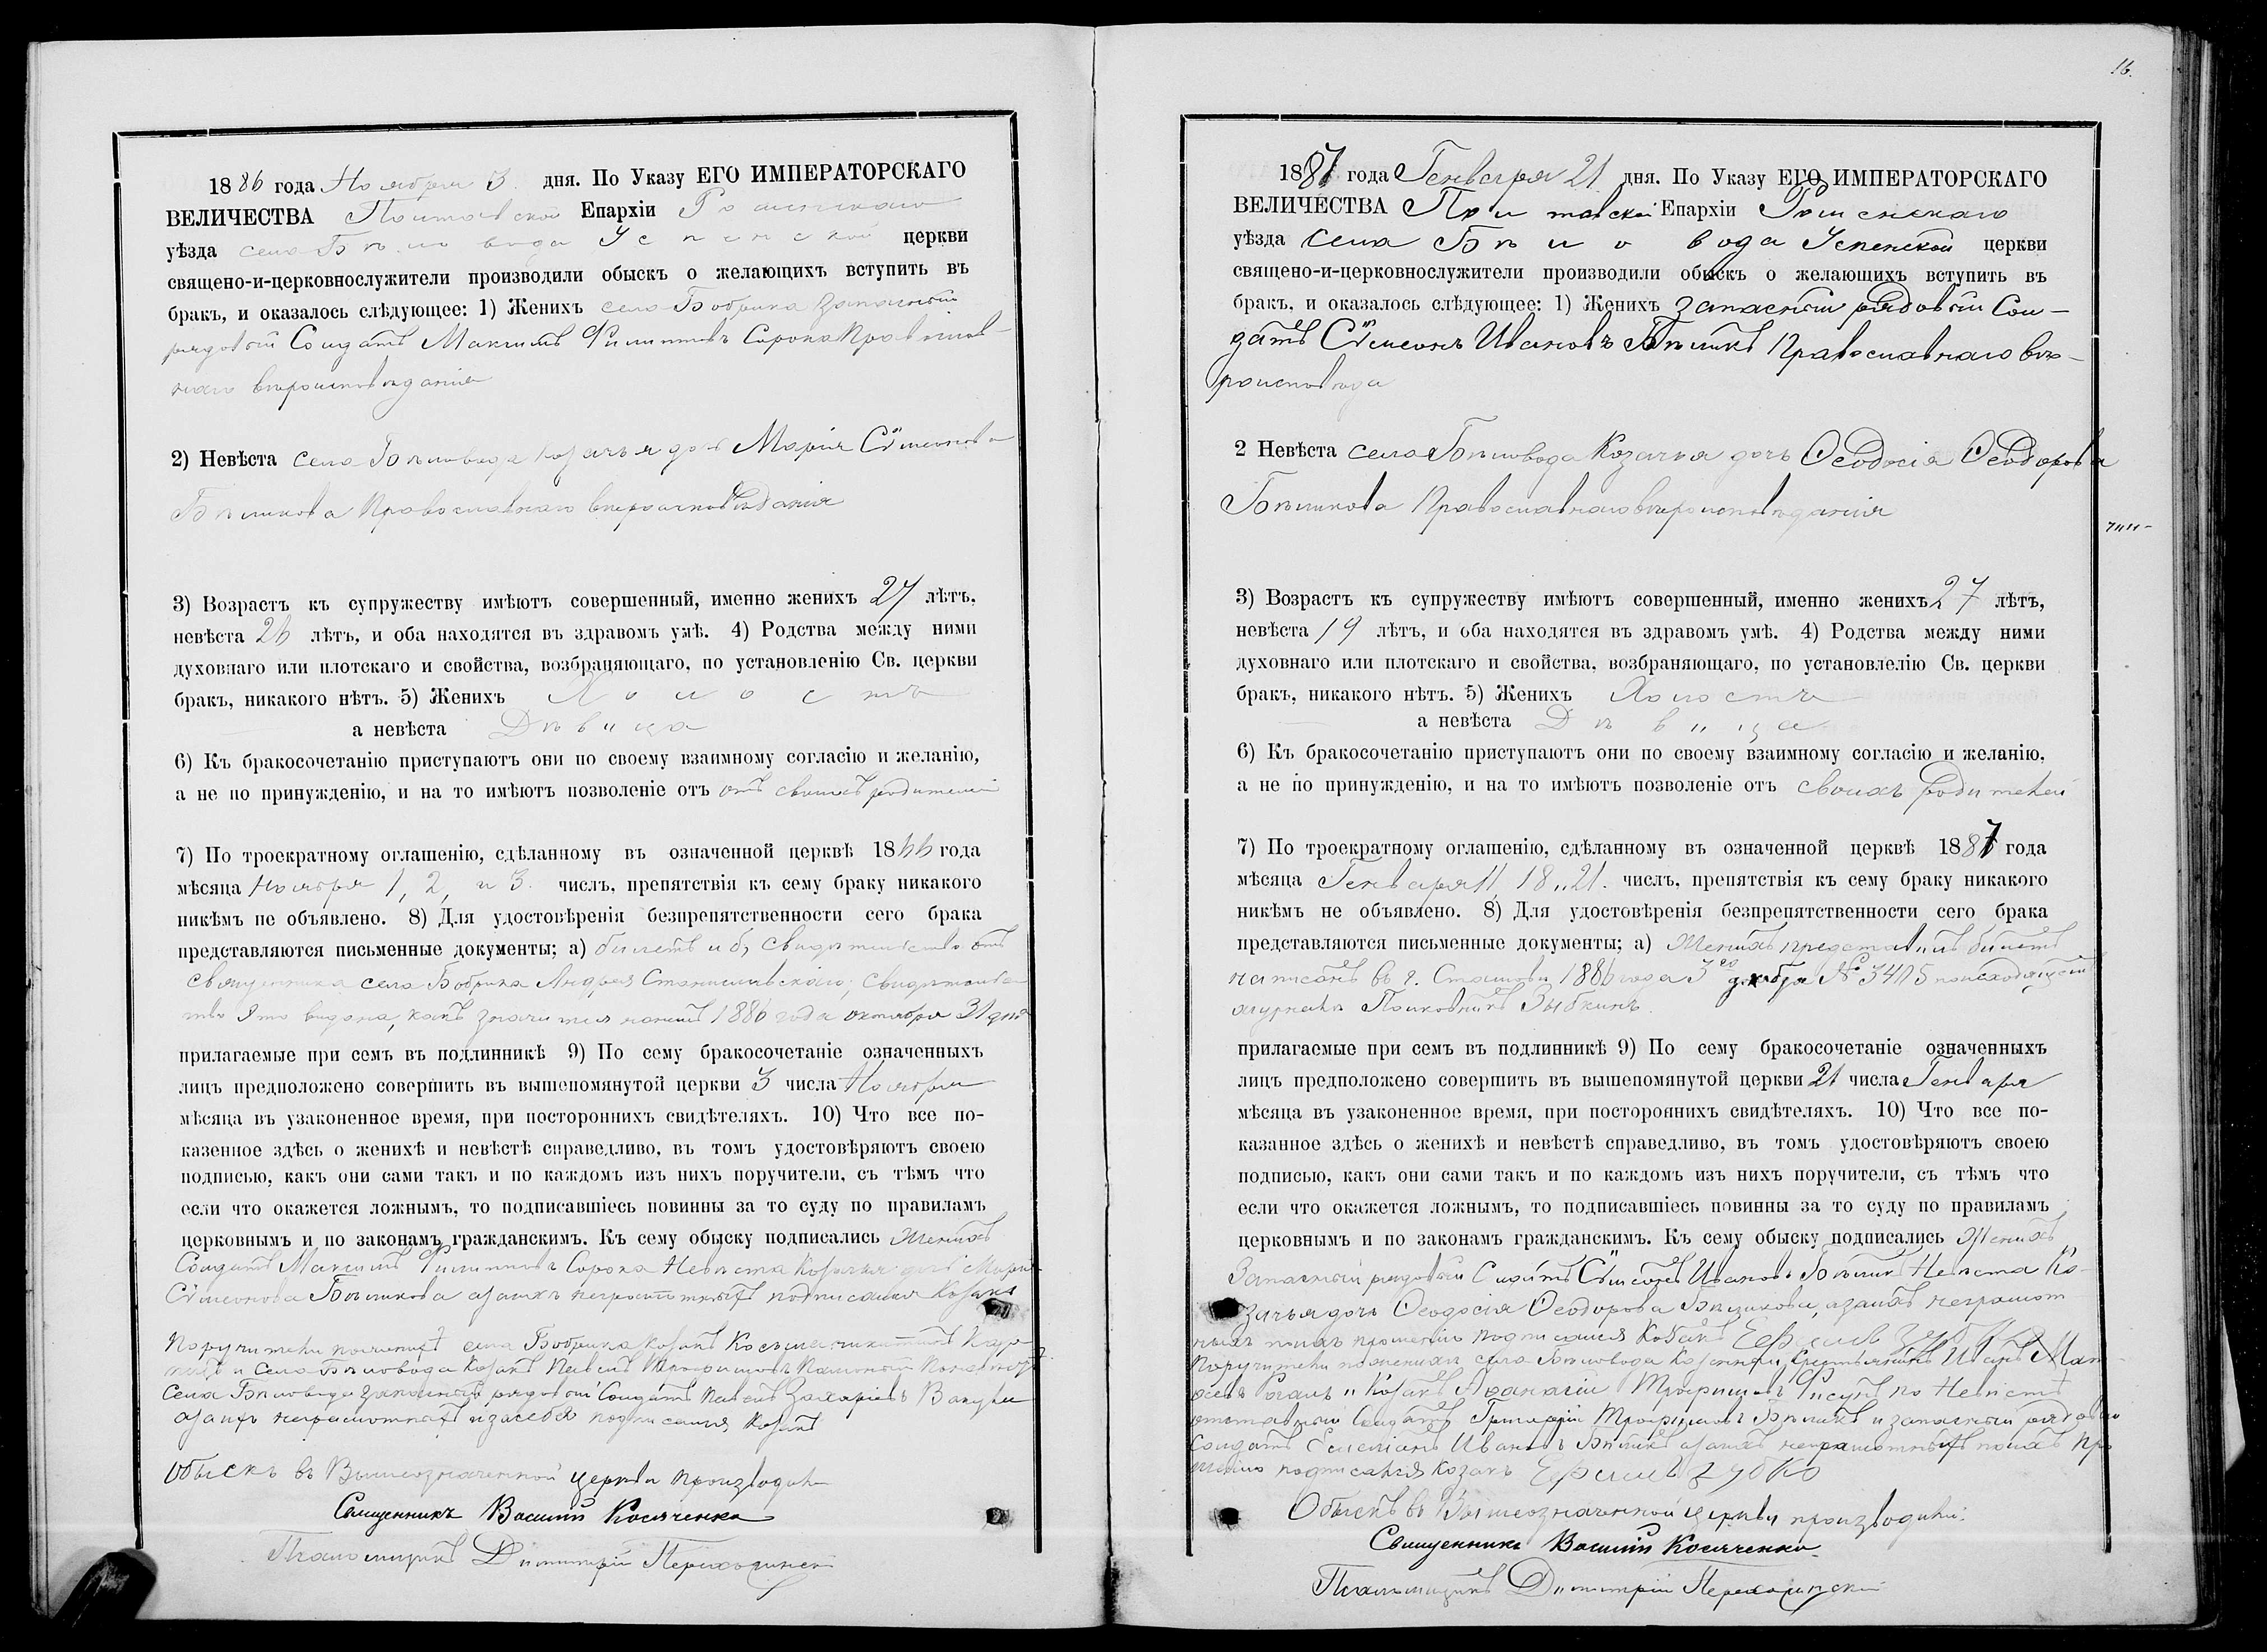 1886 года Ноября 3 дня. По Указу ЕГО ИМПЕРАТОРСКАГО
ВЕЛИЧЕСТВА Полтавской Епархіи Роменскаго
уѣзда села Бѣловода Успенской церкви
священо-и-церковнослужители производили обыскъ о желающихъ вступить въ
бракъ, и оказалось слѣдующее: 1) Женихъ села Бобрика запасный
рядовой Солдатъ Максимъ Филиповъ Сорока Православ-
наго вѣроисповѣданія
2) Невѣста села Бѣловода козачья дочь Марія Сѵмеонова
Бѣликова Православнаго вѣроисповѣданія
3) Возрастъ къ супружеству имѣютъ совершенный, именно женихъ 27 лѣтъ,
невѣста 26 лѣтъ, и оба находятся въ здравомъ умѣ. 4) Родства между ними
духовнаго или плотскаго и свойства, возбраняющаго, по установленію Св. церкви
бракъ, никакого нѣтъ. 5) Женихъ Холостъ
а невѣста Дѣвица
6) Къ бракосочетанію приступаютъ они по своему взаимному согласію и желанію,
а не по принужденію, и на то имѣютъ позволеніе отъ отъ своихъ родителей
7) По троекратному оглашенію, сдѣланному въ означенной церквѣ 1886 года
мѣсяца Ноября 1, 2, и 3. числъ, препятствія къ сему браку никакого
никѣмъ не объявлено. 8) Для удостовѣренія безпрепятственности сего брака
представляются письменные документы; а) билетъ и б, свидѣтельство отъ
священника села Бобрика Андрея Станиславскаго; свидѣтельс
тво это видона, какъ значится 1886 года октября 31 дня
прилагаемые при семъ въ подлинникѣ 9) По сему бракосочетаніе означенныхъ
лицъ предположено совершить въ вышепомянутой церкви 3 числа Ноября
мѣсяца въ узаконенное время, при постороннихъ свидѣтеляхъ. 10) Что все по-
казенное здѣсь о женихѣ и невѣстѣ справедливо, въ томъ удостовѣряютъ своею
подписью, какъ они сами такъ и по каждомъ изъ нихъ поручители, съ тѣмъ что
если что окажется ложнымъ, то подписавшіесь повинны за то суду по правиламъ
церковнымъ и по законамъ гражданскимъ. Къ сему обыску подписались Женихъ
Солдатъ Максимъ Филиповъ Сорока Невѣста Козачья дочь Марія
Сѵмеонова Бѣликова азаихъ неграмотныхъ подписался Козакъ
Поручители села Бобрика козакъ
и села Бѣловода Козакъ
Села Бѣловода запасный рядовой Солдатъ Захаріевъ Вакула
азаихъ неграмотныхъ изасебя подписался козакъ
Обыскъ въ Вышеозначенной церкви производили
Священникъ Василій Косяченко
Псаломщикъ Димитрій
16.
1887 года Генваря 21 дня. По Указу ЕГО ИМПЕРАТОРСКАГО
ВЕЛИЧЕСТВА Полтавской Епархіи Роменскаго
уѣзда села Бѣловода Успенской церкви
священо-и-церковнослужители производили обыскъ о желающихъ вступить въ
бракъ, и оказалось слѣдующее: 1) Женихъ запасный рядовой Сол-
датъ Сѵмеонъ Ивановъ Бѣликъ Православнаго вѣ-
роисповѣда
2 Невѣста села Бѣловода Козачья дочь Ѳеодосія Ѳеодорова
Бѣликова Православнаго вѣроисповѣданія
3) Возрастъ къ супружеству имѣютъ совершенный, именно женихъ 27 лѣтъ,
невѣста 19 лѣтъ, и оба находятся въ здравомъ умѣ. 4) Родства между ними
духовнаго или плотскаго и свойства, возбраняющаго, по установлелію Св. церкви
бракъ, никакого нѣтъ. 5) Женихъ Холостъ
а невѣста Дѣвица
6) Къ бракосочетанію приступаютъ они по своему взаимному согласію и желанію,
а не по принужденію, и на то имѣютъ позволеніе отъ своихъ родителей
7) По троекратному оглашенію, сдѣланному въ означенной церквѣ 1887 года
мѣсяца Генваря 11, 18, 21. числъ, препятствія къ сему браку никакого
никѣмъ не объявлено. 8) Для удостовѣренія безпрепятственности сего брака
представляются письменные документы; а) Женихъ представилъ билетъ
написанъ въ г. 1886 года 3го декабря № 3405
журналу Полковникъ Зыбкинъ.
прилагаемые при семъ въ подлинникѣ 9) По сему бракосочетаніе означенныхъ
лицъ предположено совершить въ вышепомянутой церкви 21 числа Генваря
мѣсяца въ узаконенное время, при постороннихъ свидѣтеляхъ. 10) Что все по-
казанное здѣсь о женихѣ и невѣстѣ справедливо, въ томъ удостовѣряютъ своею
подписью, какъ они сами такъ и по каждомъ изъ нихъ поручители, съ тѣмъ что
если что окажется ложнымъ, то подписавшіесь повинны за то суду по правиламъ
церковнымъ и по законамъ гражданскимъ. Къ сему обыску подписались Женихъ
Запасный рядовой Сѵмеонъ Ивановъ Бѣликъ Невѣста Ко-
зачья дочь Ѳеодосія Ѳеодорова Бѣликова, азаихъ неграмот
ныхъ поихъ прошенію подписался Козакъ
Поручители поженихъ села Бѣловода Иванъ
и Козакъ Аѳанасій Трофимовъ по Невѣстѣ
отставный Солдатъ Григорій Трофимовъ Бѣликъ и запасный рядовой
Солдатъ Емеліанъ Ивановъ Бѣликъ азаихъ неграмотныхъ поихъ про
шенію подписался козакъ
Обыскъ въ Вышеозначенной церкви производили.
Священникъ Василій Косяченко
Псаломщикъ Димитрій